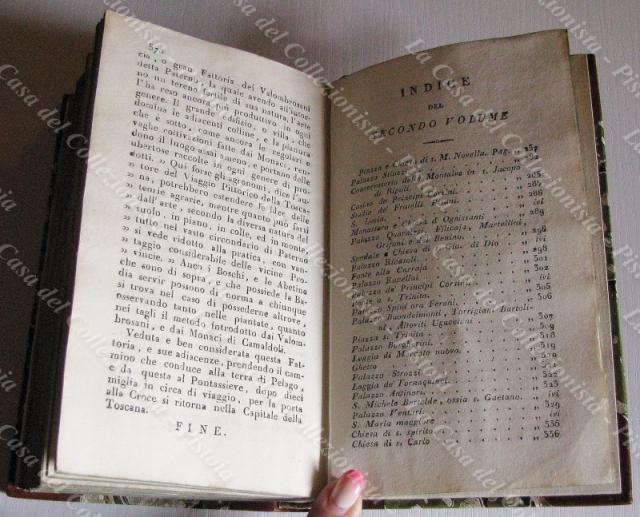 57
cio, o gran Fattoria dei Valombrosani
detta Paterno, la quale avendo all'intor-
no un terreno fertile di sua natura, l'arte
l'ha reso ancora più produttivo in ogni
genere. Il grande edifizio, o villa, che
domina le adiacenti colline, e la pianura
che è sotto, come ancora le regolari e
vaghe coltivazioni fatte dai Monaci, ren-
dono il luogo assai ameno, e portano delle
ubertose raccolte in ogni genere di pro-
dotti. „ Qui forse gli agronomi, dice l'au-
tore del Viaggio Pittorico della Tosca-
„ na, potrebbero estendere le idee delle
„ teorie agrarie, mentre quanto può farsi
„ dall'arte, secondo la diversa natura del
„ tufolo, in piano, in colle, ed in monte,
„ tutto nel vasto circondario di Paterno
„ si vede ridotto alla pratica, con van-
„ taggio considerabile delle vicine Pro-
„ vincie. „ Anco i Boschi, e le Abetine
che sono di sopra, e che possiede la Ba-
dia servir possono di norma a chiunque
si trova nel caso di possederne altrove,
osservando tanto nelle piantate, quanto
nei tagli il metodo introdotto dai Valom-
brosani, e dai Monaci di Camaldoli.
Veduta e ben considerata questa Fat-
toria, e sue adiacenze, prendendo il cam-
mino che conduce alla terra di Pelago,
e da questa al Pontassieve, dopo dieci
miglia in circa di viaggio, per la porta
alla Croce si ritorna nella Capitale della
Toscana.
FINE.
INDICE
DEL
SECONDO VOLUME
Piazza e Chiesa di S. M. Novella. Pag. 257
Palazzo Stiozzi
Conservatorio della Montalve in s. Jacopo
di Ripoli. 285
Casino de' Principi Corsini. 286
Studio de' Fratelli Pisani. 287
S. Lucia. ivi
Monastero e Chiesa di Ognissanti „ 289
Palazzi Quaratesi, Filicaja, Martellini,
Grifoni e del Benino. „ 298
Spedale e Chiesa di s. Gio. di Dio „ ivi
Palazzo Ricasoli. „ 298
Ponte alla Carraja „ 301
Palazzo Rasellini „ 302
Palazzo de' Principi Corsini. „ ivi
Ponte a s. Trinita. „ 305
Palazzo Spini ora Feroni. „ 306
Palazzo Buondelmonti, Torrigiani, Bartoli-
ni, Altoviti Uguccioni „ 307
Piazza s. Trinita „ 318
Palazzo Borgherini. „ 319
Loggia di Mercato nuovo. „ ivi
Ghetto
Palazzo Strozzi
Loggia de' Tornaquinci.
Palazzo Antinori. „ 325
S. Michele Bertelde, ossia s. Gaetano. „ ivi
Palazzo Venturi. „ 329
S. Maria maggiore „ ivi
Chiesa di s. spirito „ 335
Chiesa di s. Carlo „ 336
La Casa del Collezionista - Pistoia